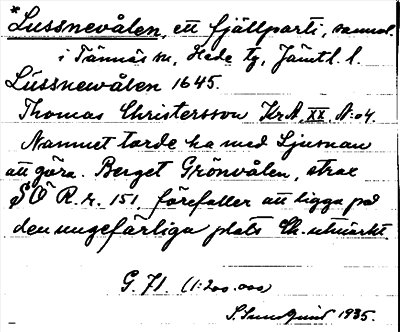 *Lussnevålen, ett fjällparti, sannol.
i Tännäs sn, Hede tg, Jämtl. l.
Lüssnewålen 1645.
Thomas Christersson Kr.A. XX. N:o 4.
Namnet torde ha med Ljusnan
att göra. Berget Grönvålen, strax
SÖ R.r. 151, förefaller att ligga på
den ungefärliga plats Ch. utmärkt.
G. 71. (1:200.000)
S. Lundquist 1935.